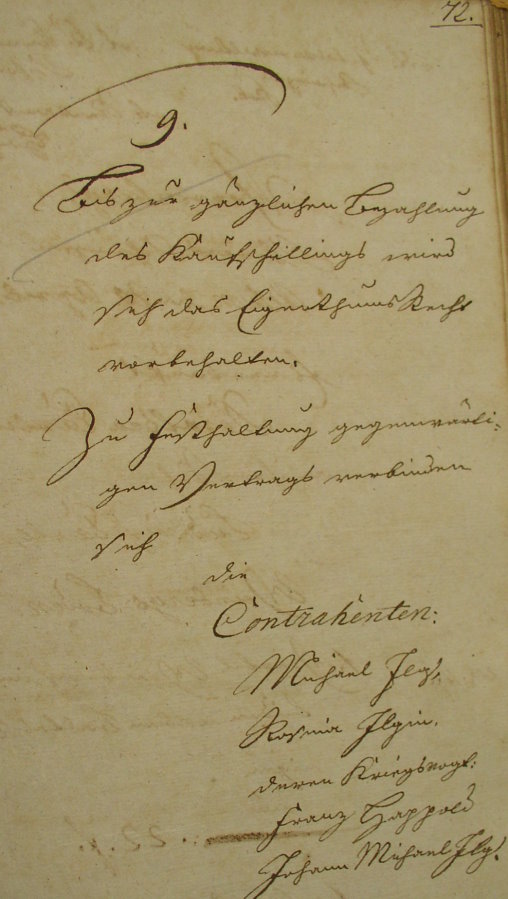 72.
9.
Bis zur gänzlichen Bezahlung
des Kaufschillings wird
sich das Eigenthums Recht
vorbehalten.
Zu Festhaltung gegenwärti-
gen Vertrags verbinden
sich
die
Contrahenten:
Michael Ilg,
Rosina Ilgin,
deren Kriegsvogt:
Franz Happold
Johann Michael Ilg.